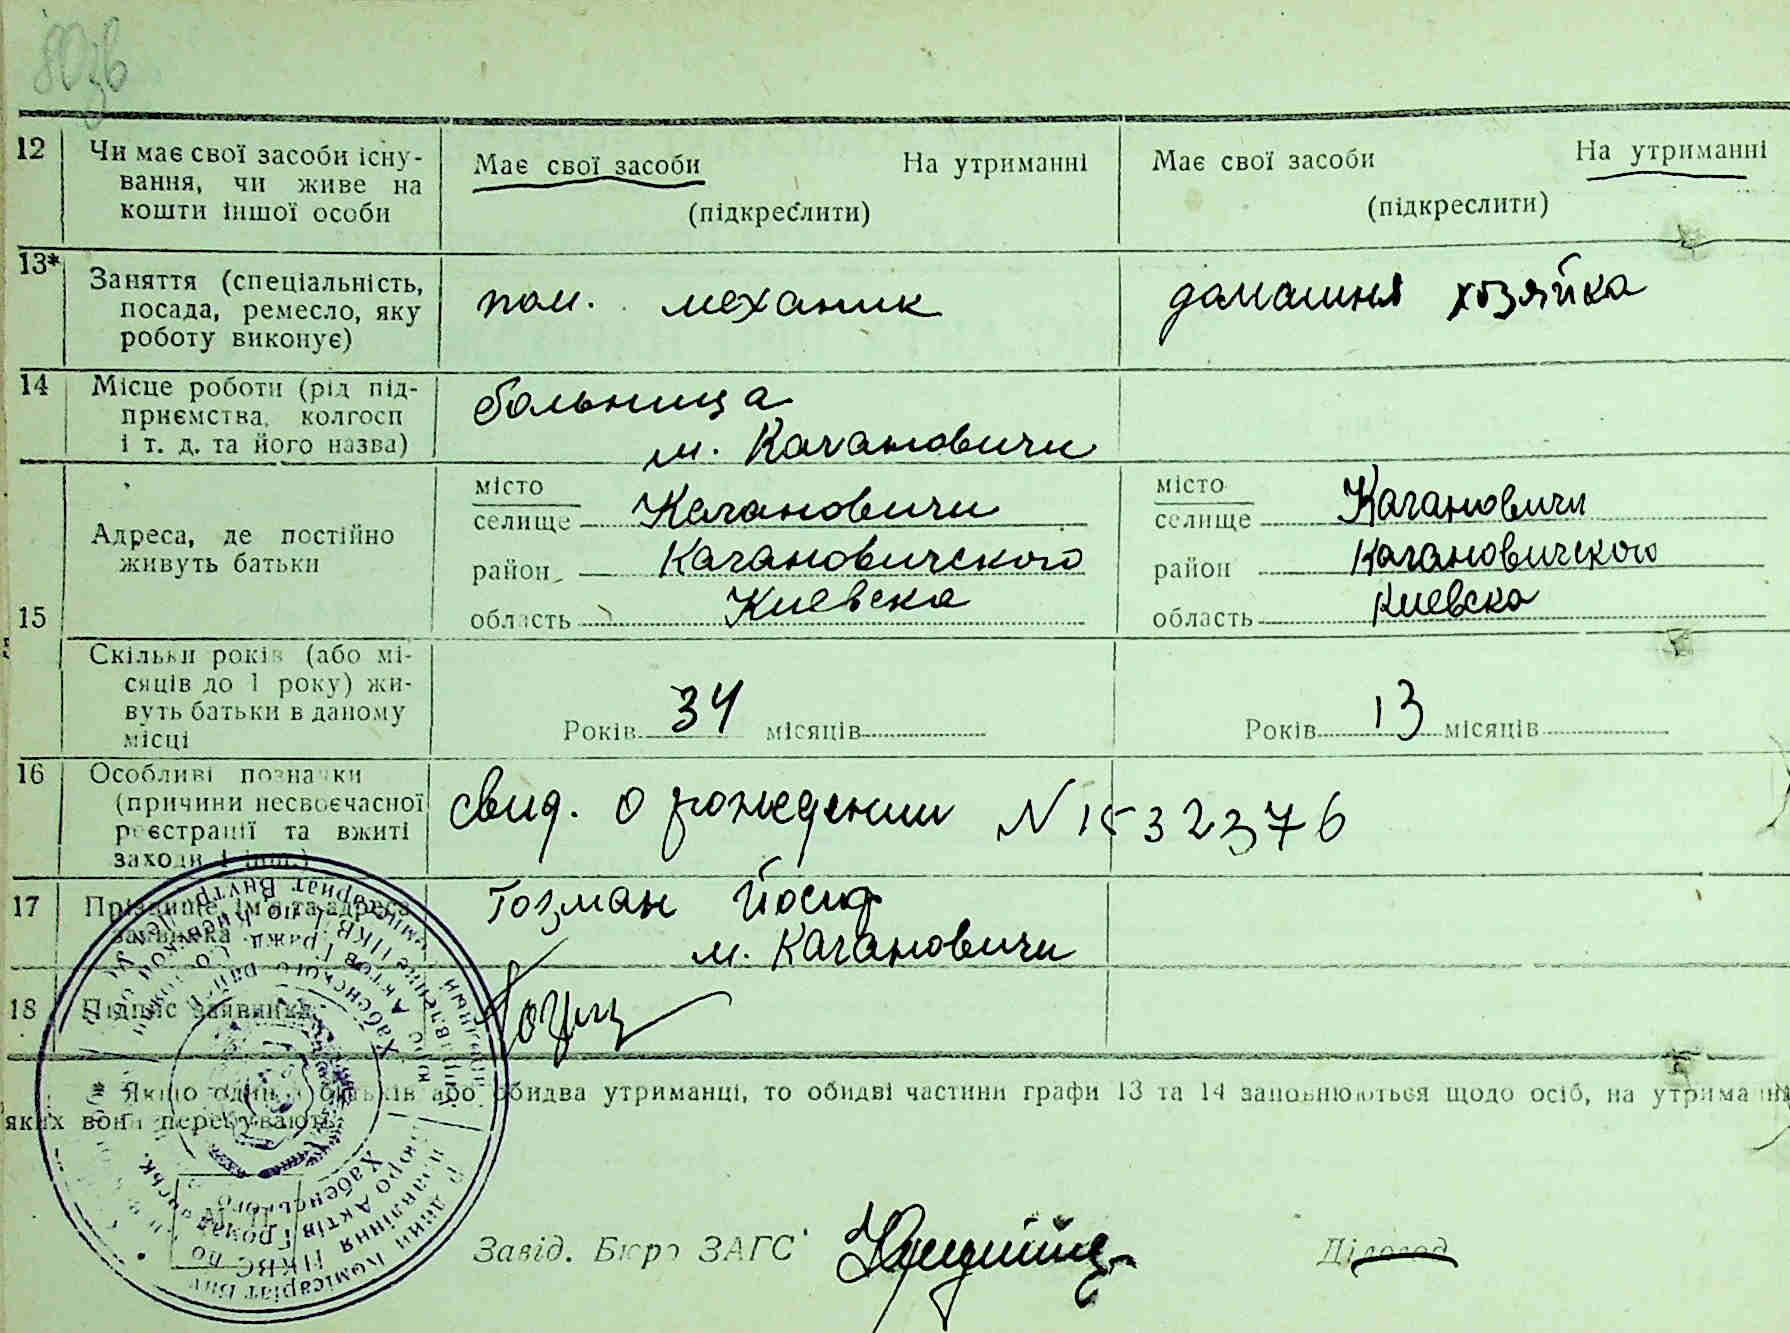 80зв
12 Чи має свої засоби існу-
вання, чи живе на
кошти іншої особи
Має свої засоби На утриманні
(підкреслити)
Має свої засоби На утриманні
(підкреслити)
13* Заняття (спеціальність,
посада, ремесло, яку
роботу виконує)
пом. механик
домашня хозяйка
14 Місце роботи (рід під-
приємства, колгосп
і т. д. та його назва)
больница
м. Кагановичи
15
Адреса, де постійно
живуть батьки
місто
селище Кагановичи
район Кагановичского
область Киевска
місто
селище Кагановичи
район Кагановичского
область Киевска
Скільки років (або мі-
сяців до 1 року) жи-
вуть батьки в даному
місці
Років 34 місяців
Років 13 місяців
16 Особливі позначки
(причини несвоєчасної
реєстрації та вжиті
заходи і інш.)
свид. о рождении N 1532376
17 Прізвище, ім'я та адреса
заявника
Гозман Йосиф
м. Кагановичи
18 Підпис заявника
* Якщо один з батьків або обидва утриманці, то обидві частини графи 13 та 14 заповнюються щодо осіб, на утриманні
яких вони перебувають.
Завід. Бюро ЗАГС
Діловод